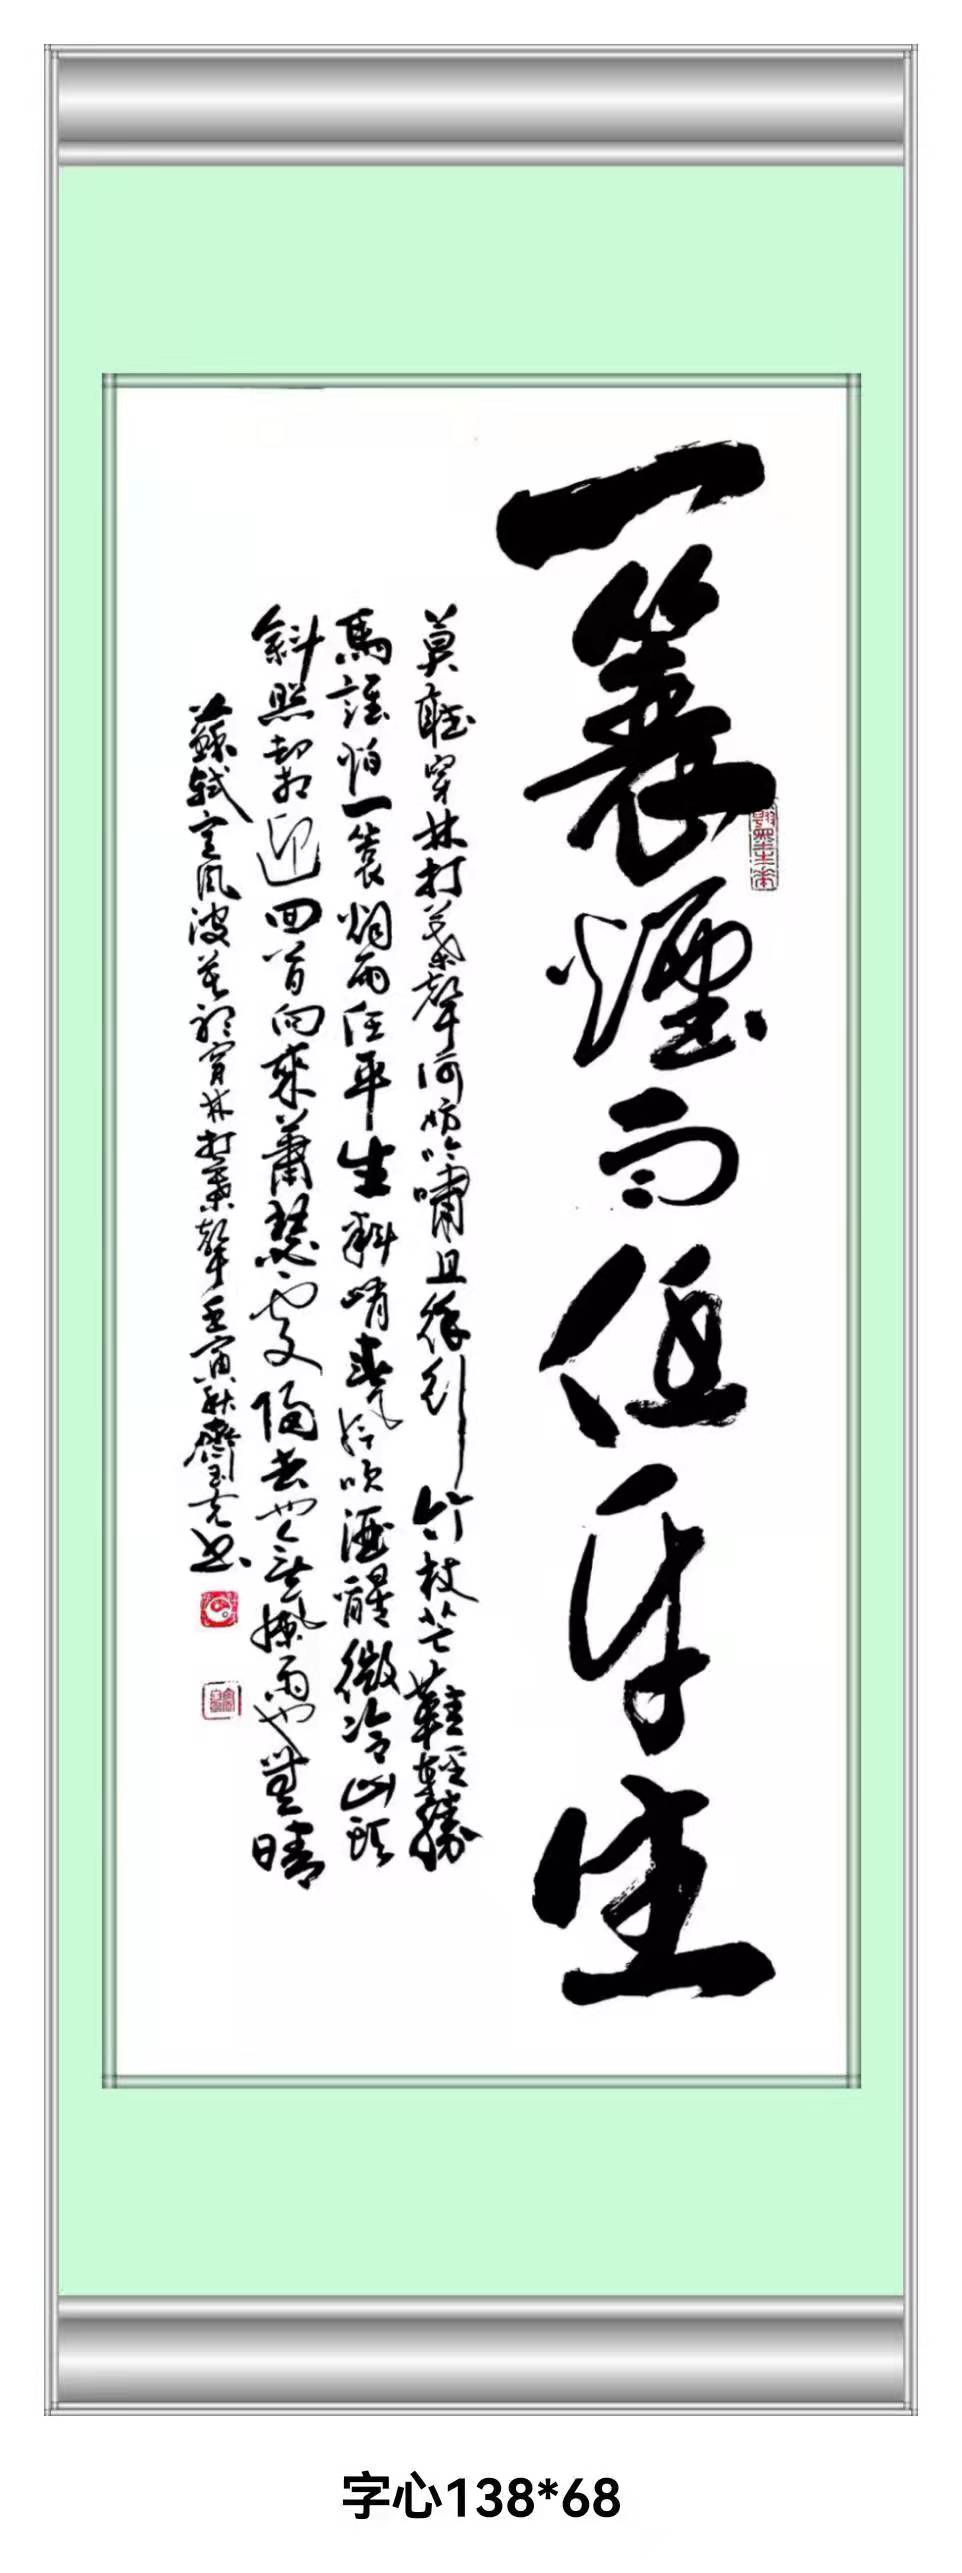 一蓑煙雨任平生
莫聽穿林打葉聲何妨吟嘯且徐行竹杖芒鞋輕勝
馬誰怕一蓑烟雨任平生料峭春風吹酒醒微冷山頭
斜照却相迎回首向來蕭瑟處歸去也無風雨也無晴
蘇軾定風波莫聽穿林打葉聲壬寅秋齊玉克書
字心138*68